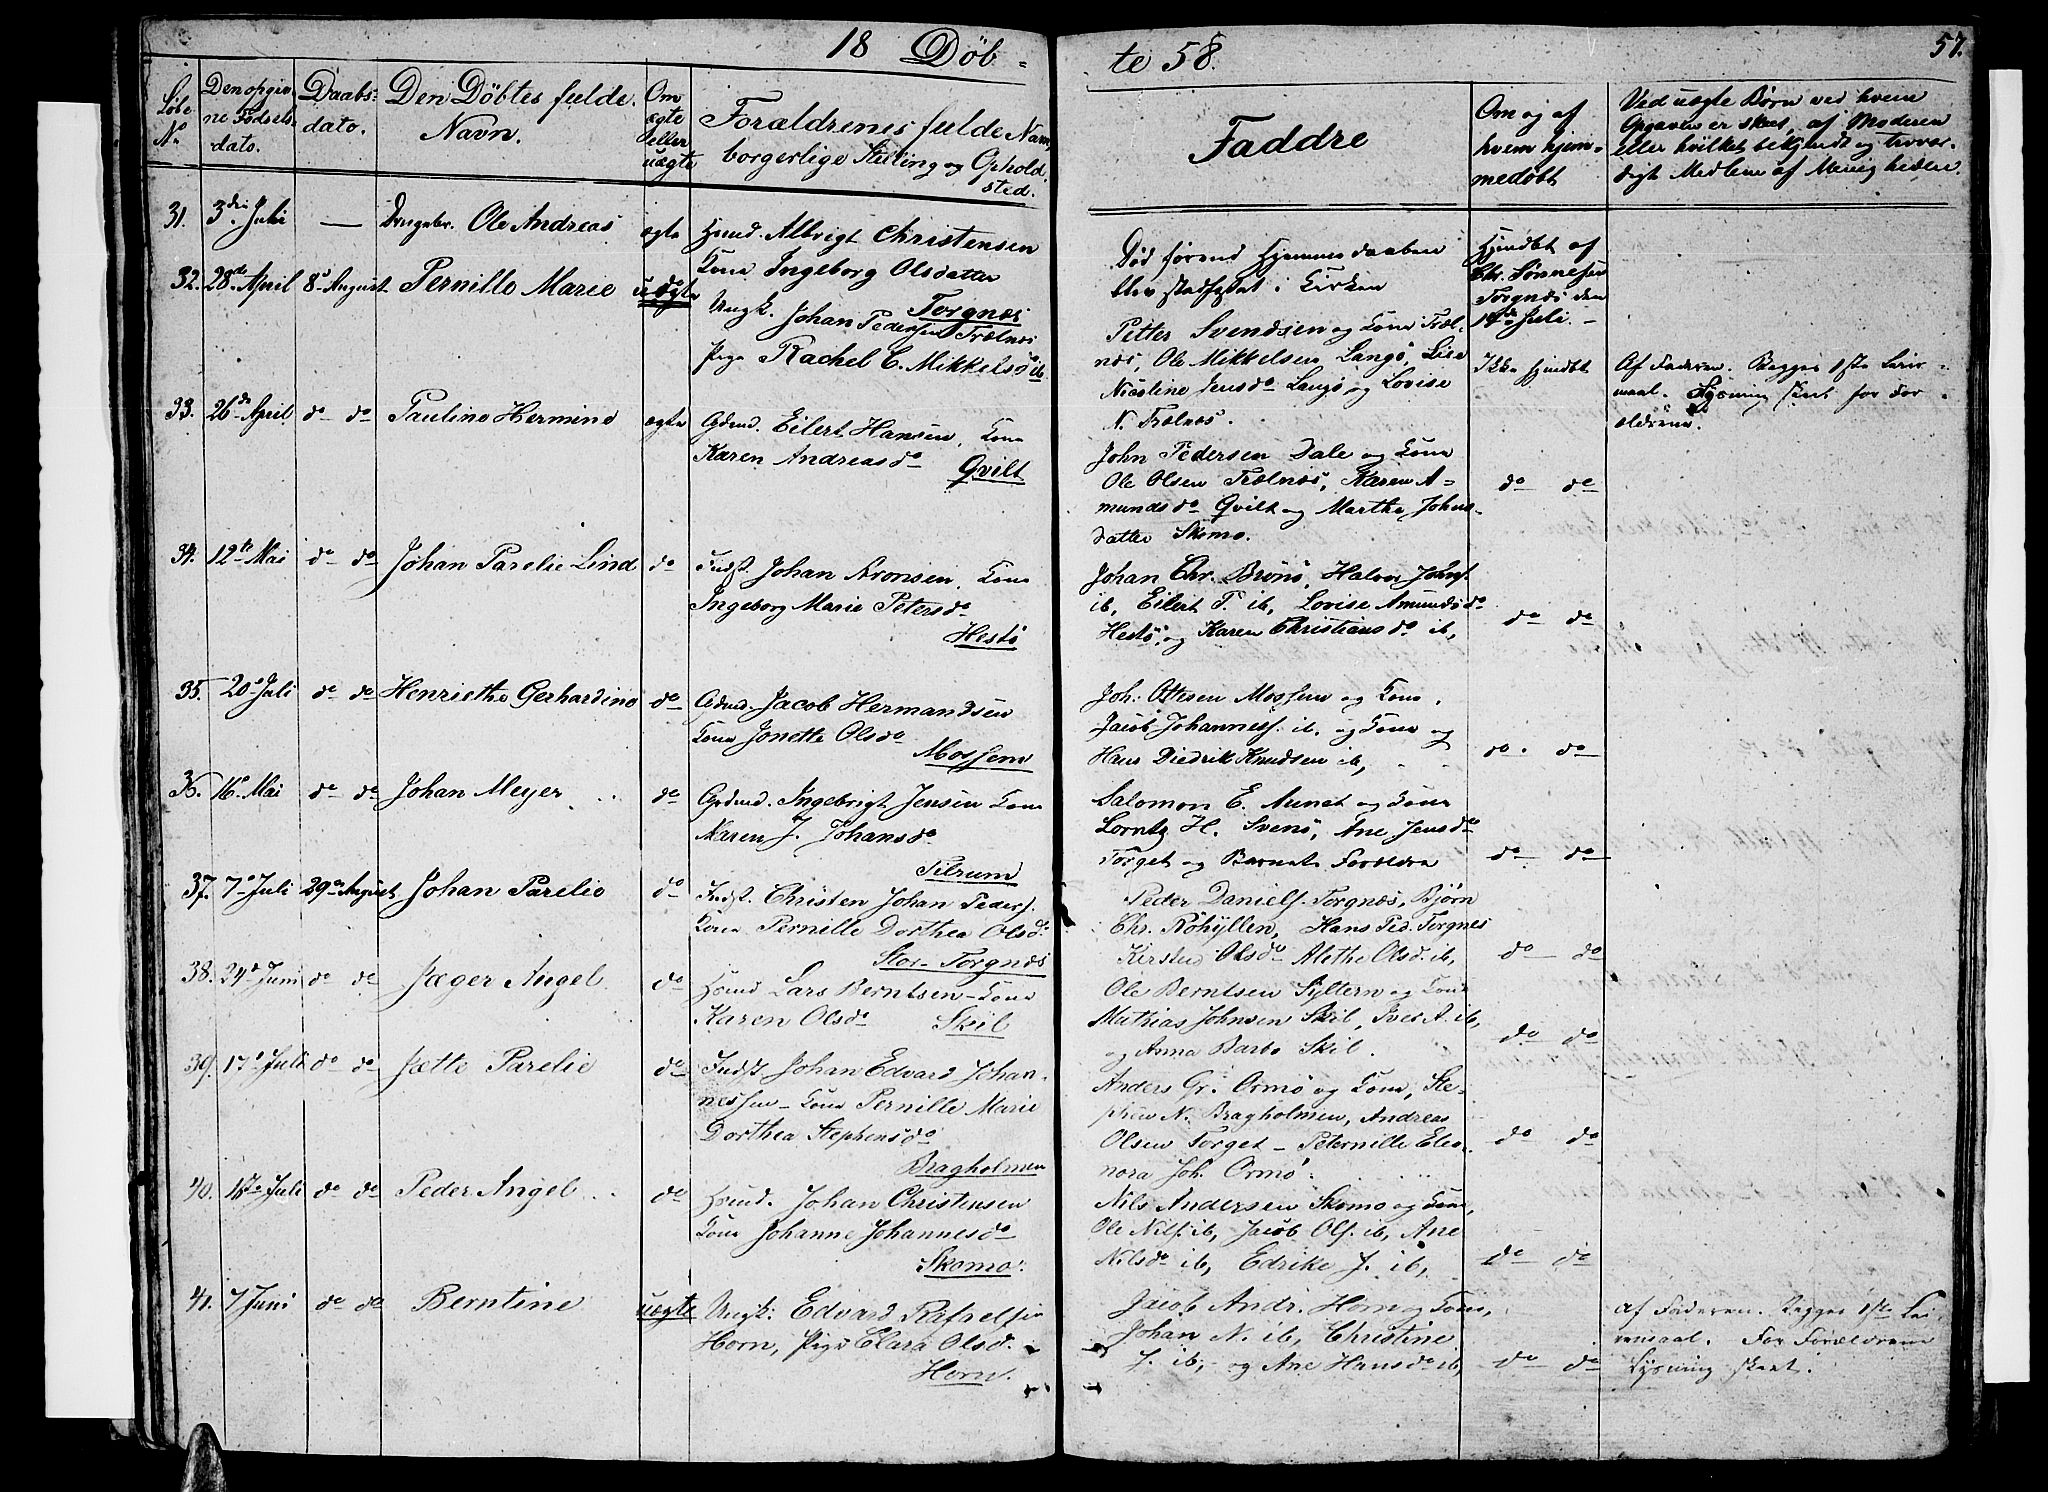 18 Döb-
te 58.
57.
Löbe No
Den opgivne Fødselsdato.
Daabsdato.
Den Döbtes fulde Navn.
Om ægte eller uægte
Forældrenes fulde Navn, borgerlige Stilling og Opholdsted.
Faddre
Om og af hvem hjemmedøbt
Ved uægte Børn ved hvem
Opgaven er skeet, af Moderen
eller hvilket bekjendt og troværdigt Medlem af Menigheden.
31. 3die Juli — Drengebr. Ole Andreas ægte Huusd. Albrigt Christensen
Kone Ingeborg Olsdatter
Torgnæs
Död førend Hjemmedaaben
blev stadfæstet i Kirken
Hjmdbt af
Chr. Sønnesen
Torgnæs den
14de Juli.
32. 28de April 8de August Pernille Marie uægte
Ungk. Johan Pedersen Trælnæs
Pige Rachel C. Mikkelsdo ib
Petter Svendsen og Kone Trælnæs, Ole Mikkelsen Langö, Lise
Nicoline Jensdo Langö og Lovise
N. Trælnæs.
Ikke hjmdbt
Af Faderen. Begges 1ste Leiermaal. Lysning skeet for Forældrene.
33. 26de April do do Pauline Hermine ægte Grdmd. Eilert Hansen, Kone
Karen Andreasdo
Qvilt
John Pedersen Dale og Kone
Ole Olsen Trælnæs, Karen Amundsdo Qvilt og Marthe Johnsdatter Skomo.
do do
34. 12te Mai do do Johan Parelie Lind do Indst. Johan Aronsen, Kone
Ingeborg Marie Petersdo
Hestö
Johan Chr. Brönö, Halvor Johnsf.
ib, Eilert P. ib, Lovise Amundsdo
Hestö, og Karen Christiansdo ib,
do do
35. 20de Juli do do Henriethe Gerhardine do Grdmd. Jacob Hermandsen
Kone Jonette Olsdo
Mossem
Joh: Ottesen Mossem og Kone,
Jacob Johannesf. ib. og Kone og
Hans Diedrik Knudsen ib,
do do
36. 16de Mai do do Johan Meyer do Grdmd. Ingebrigt Jensen Kone
Karen J. Johansdo
Tilrum
Salomon E. Aunet og Kone
Lorntz H. Svenö, Ane Jensdo
Torget og Barnets Forældre
do do
37. 7de Juli 29de August Johan Parelie do Indst. Christen Johan Pedersf.
Kone Pernille Dorthea Olsdo
Stor-Torgnæs
Peder Danielsf. Torgnæs, Bjørn
Chr. Röhyllen, Hans Ped. Torgnes
Kirsten Olsdo Alethe Olsd. ib,
do do
38. 24de Juni do do Jæger Angel do Huusd Lars Berntsen - Kone
Karen Olsdo Skil
Ole Berntsen Syltern og Kone
Mathias Johnsen Skil, Iver A. ib,
og Anna Barbo Skil.
do do
39. 17de Juli do do Jette Parelie do Indst Johan Edvard Johannessen - Kone Pernille Marie
Dorthea Stephensdo
Bragholmen
Anders Gr. Ormö og Kone, Stephen N. Bragholmen, Andreas
Olsen Torget - Peternille Eleonora Joh. Ormö.
do do
40. 16de Juli do do Peder Angel do Huusd. Johan Christensen
Kone Johanne Johannesdo
Skomo.
Nils Andersen Skomo og Kone,
Ole Nilsf. ib, Jacob Olsf. ib, Ane
Nilsdo ib, Edrike J. ib,
do do
41. 7 Juni do do Berntine uægte Ungk. Edvard Rafaelsen
Horn, Pige Clara Olsd.
Horn.
Jacob Andr. Horn og Kone,
Johan N. ib, Christine
J. ib, og Ane Hansdo ib,
do do
Af Faderen. Begges 1ste Leiermaal. For Forældrene
Lysning skeet.